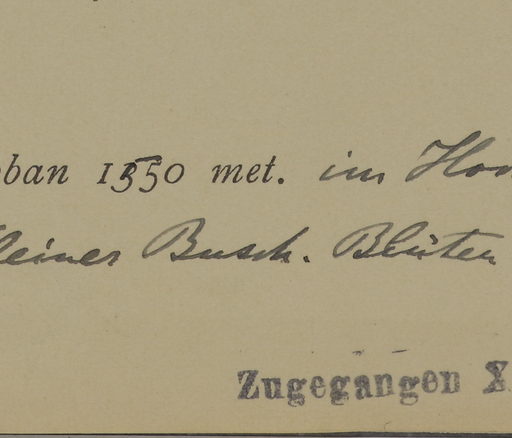 ban 1550 met. im
leiner Busch. Blüten
Zugegangen X